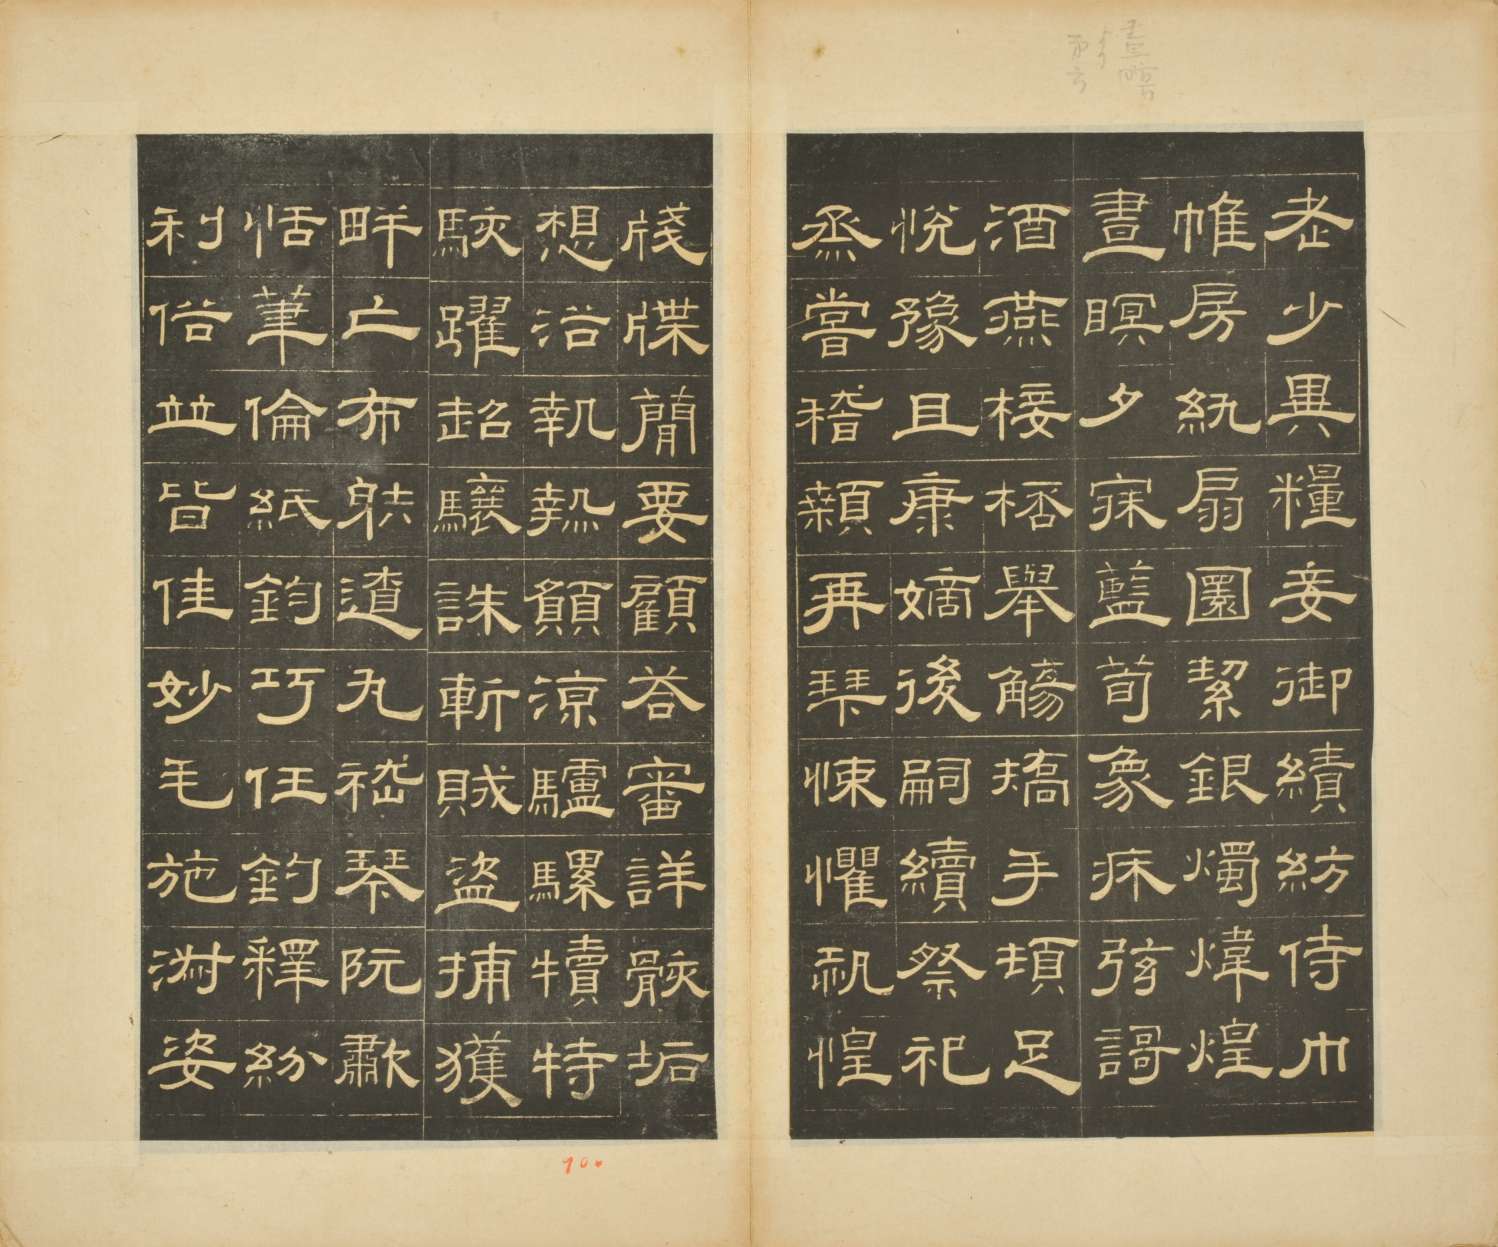 老少異糧妾御績紡侍巾
帷房紈扇圓絜銀燭煒煌
晝瞑夕寐藍荀象床弦謌
酒燕椄桮舉觴撟手頓足
悅豫且康嫡後嗣續祭祀
烝嘗稽顙再拜悚懼恐惶
牋牒簡要顧荅審詳骸垢
想浴執熱願涼驢騾犢特
駭躍超驤誅斬賊盜捕獲
畔亡布射遼丸嵇琴阮歗
恬筆倫紙鈞巧任釣釋紛
利俗並皆佳妙毛施淑姿